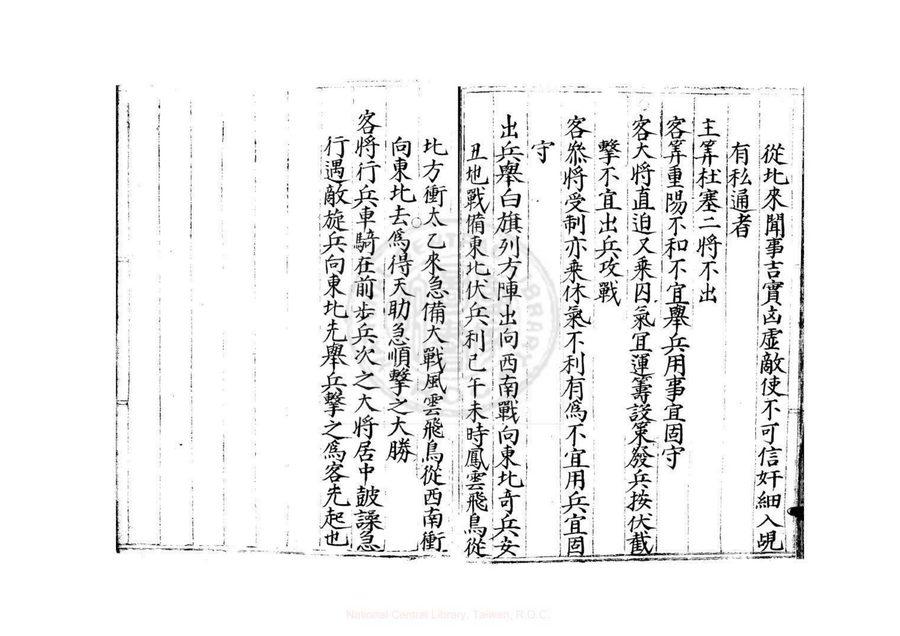 從北來聞事吉實凶虛敵使不可信奸細入覘
有私通者
主筭杜塞二將不出
客筭重陽不和不宜舉兵用事宜固守
客大將直迫又乘囚氣宜運籌設策發兵按伏截
擊不宜出兵攻戰
客叅將受制亦乘休氣不利有爲不宜用兵宜固
守
出兵舉白旗列方陣出向西南戰向東北奇兵安
丑地戰備東北伏兵利巳午未時風雲飛鳥從
北方衝太乙來急備大戰風雲飛鳥從西南衝
向東北去爲得天助急順擊之大勝
客將行兵車騎在前步兵次之大將居中鼓譟急
行遇敵旋兵向東北先舉兵擊之爲客先起也
National Central Library, Taiwan, R.O.C.